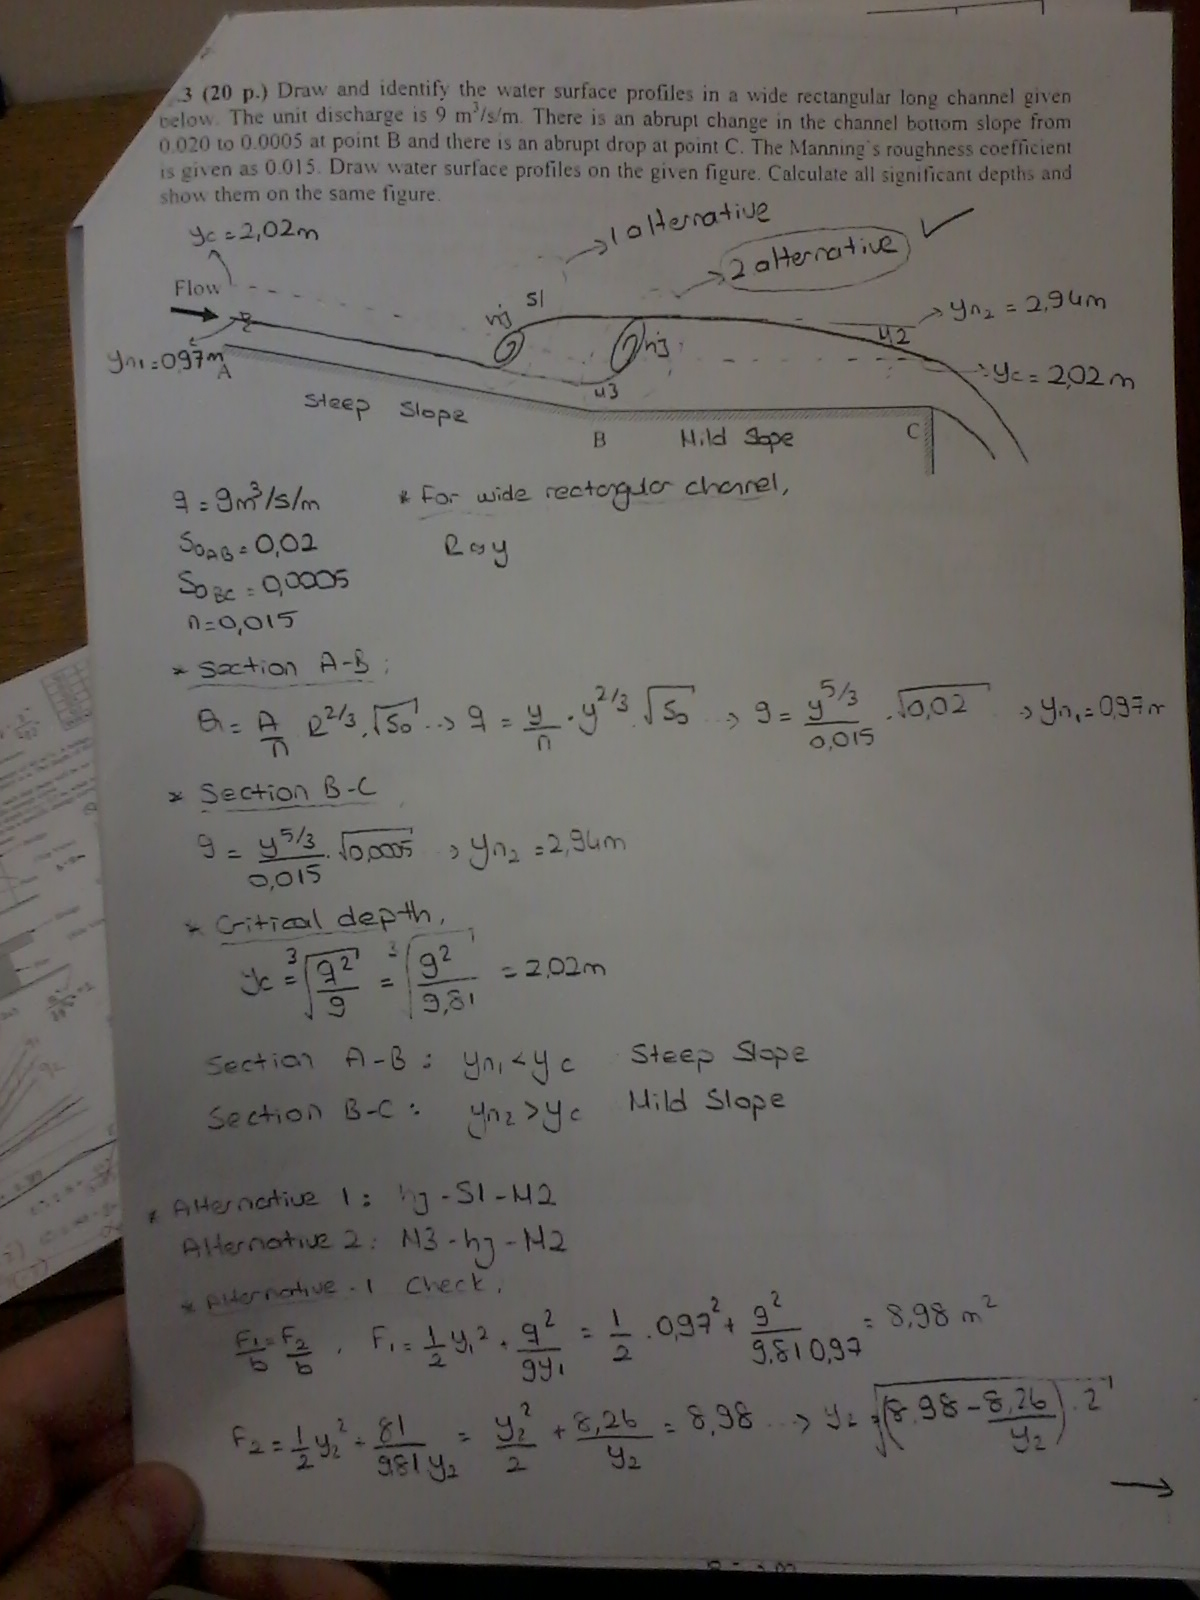 3 (20 p.) Draw and identify the water surface profiles in a wide rectangular long channel given
below. The unit discharge is 9 m³/s/m. There is an abrupt change in the channel bottom slope from
0.020 to 0.0005 at point B and there is an abrupt drop at point C. The Manning's roughness coefficient
is given as 0.015. Draw water surface profiles on the given figure. Calculate all significant depths and
show them on the same figure.
yc = 2,02m
1 alternative
2 alternative ✓
Flow
S1
hj
yn2 = 2,94m
M2
hj
yn1 = 0,97m
A
yc = 2,02m
M3
Steep Slope
B
Mild Slope
C
q = 9m³/s/m
* For wide rectangular channel,
S0AB = 0,02
R≈y
S0BC = 0,0005
n=0,015
* Section A-B:
Q = A/n R^2/3 . √S0 → q = y/n . y^2/3 . √S0 → 9 = y^5/3/0,015 . √0,02 → yn1 = 0,97m
* Section B-C
9 = y^5/3/0,015 . √0,0005 → yn2 = 2,94m
* Critical depth,
yc = ³√(q²/g) = ³√(9²/9,81) = 2,02m
Section A-B : yn1 < yc Steep Slope
Section B-C : yn2 > yc Mild Slope
* Alternative 1 : hj - S1 - M2
Alternative 2 : M3 - hj - M2
* Alternative - 1 Check,
F1/b = F2/b , F1 = 1/2 y1² + q²/gy1 = 1/2 . 0,97² + 9²/9,81 0,97 = 8,98 m²
F2 = 1/2 y2² + 81/9,81 y2 = y2²/2 + 8,26/y2 = 8,98 → y2 = √((8,98 - 8,26/y2) . 2)
→